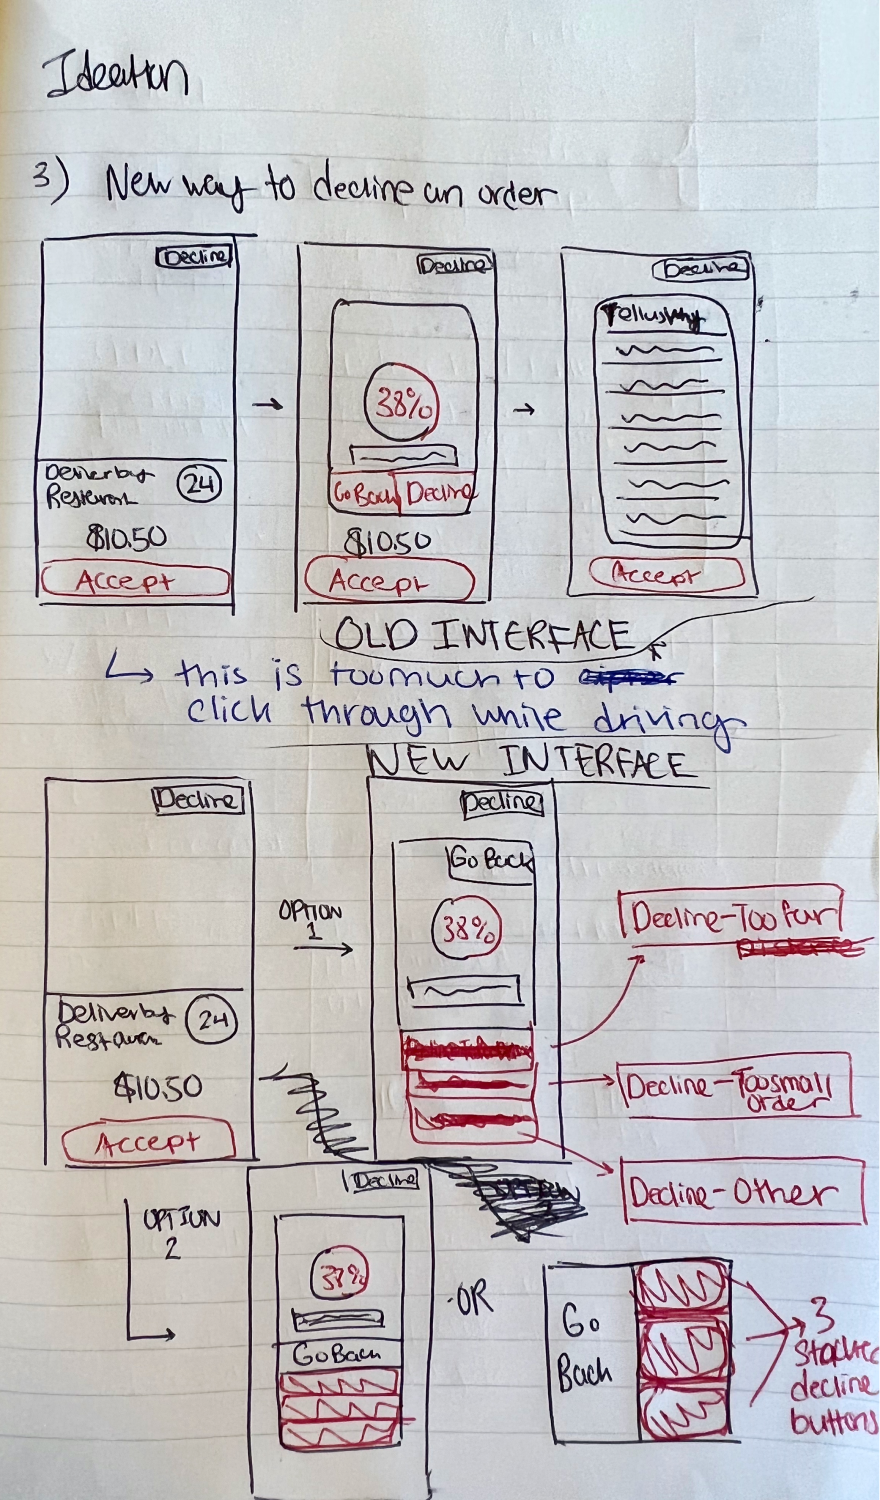 Ideation
3) New way to decline an order
Decline
Deliver by
Restauran
24
$10.50
Accept
Decline
38%
Go Back
Decline
$10.50
Accept
Decline
Tell us why
Accept
OLD INTERFACE
↳ this is too much to
click through while driving
NEW INTERFACE
Decline
Deliver by
Restauran
24
$10.50
Accept
OPTION
1
Decline
Go Back
38%
Decline-Too far
Decline-Too small
order
Decline-Other
OPTION
2
Decline
38%
Go Back
OR
Go
Back
3
Stacked
decline
buttons